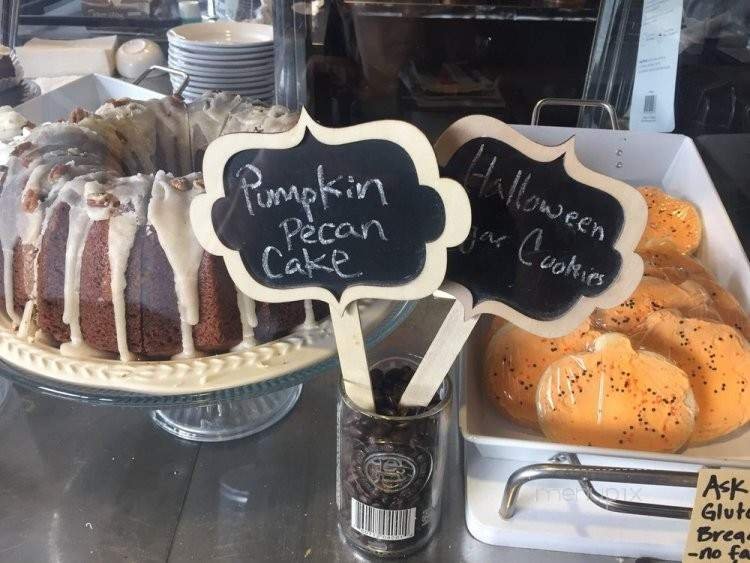 Pumpkin
Pecan
Cake
Halloween
Cookies
menupix
Ask
Glut
Brea
-no fa